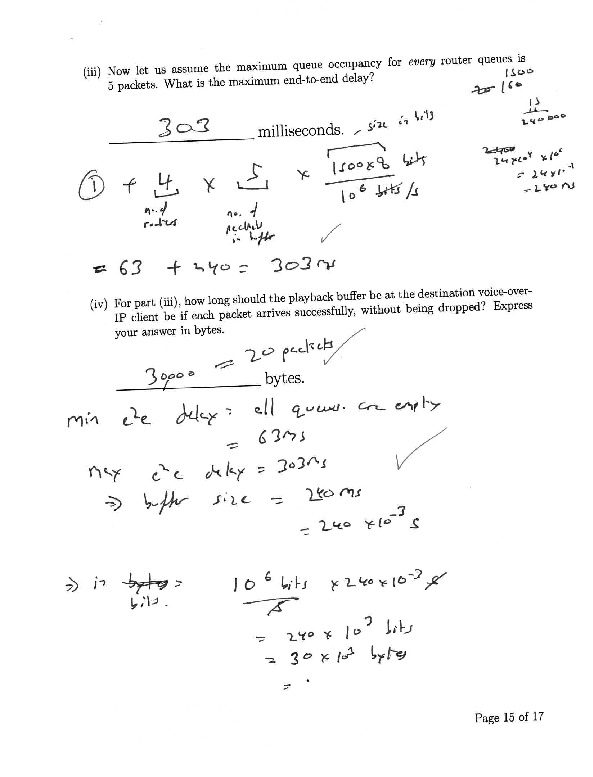 (iii) Now let us assume the maximum queue occupancy for every router queues is
5 packets. What is the maximum end-to-end delay?
1500
160
303 milliseconds. size in bits
240000
① + 4 × 5 × 1500×8 bits
10⁶ bits/s
24×10⁴ ×10⁶
= 24×10⁻¹
= 240 ms
no. of
routers
no. of
packets
in buffer
✓
= 63 + 240 = 303 ms
(iv) For part (iii), how long should the playback buffer be at the destination voice-over-
IP client be if each packet arrives successfully, without being dropped? Express
your answer in bytes.
30000 = 20 packets ✓
bytes.
min e2e delay = all queues are empty
= 63 ms
max e2e delay = 303 ms ✓
⇒ buffer size = 240 ms
= 240 ×10⁻³ s
⇒ in bytes =
bits.
10⁶ bits × 240×10⁻³ s
s
= 240 × 10³ bits
= 30 × 10³ bytes
=
Page 15 of 17